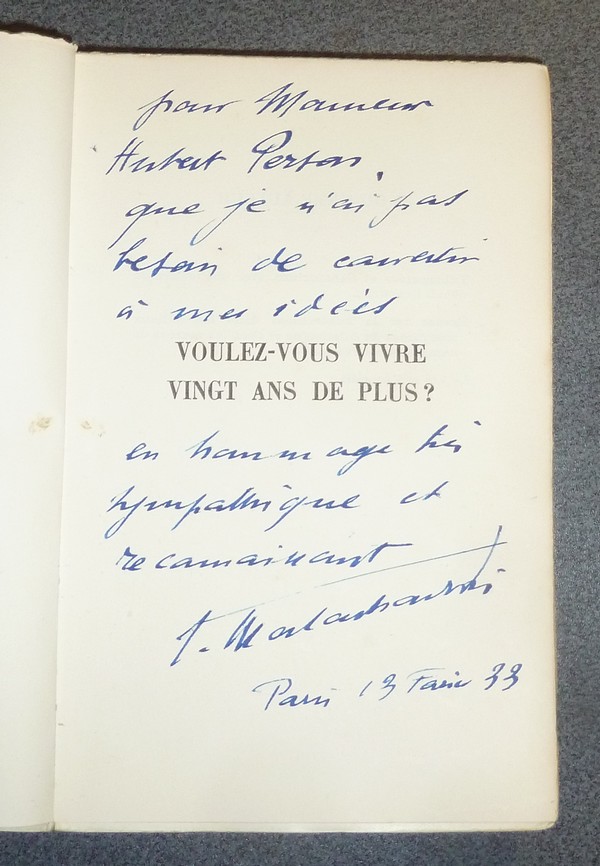 pour Monsieur
Hubert Person,
que je n'ai pas
besoin de convertir
à mes idées
VOULEZ-VOUS VIVRE
VINGT ANS DE PLUS ?
en hommage très
sympathique et
reconnaissant
Paris 13 33